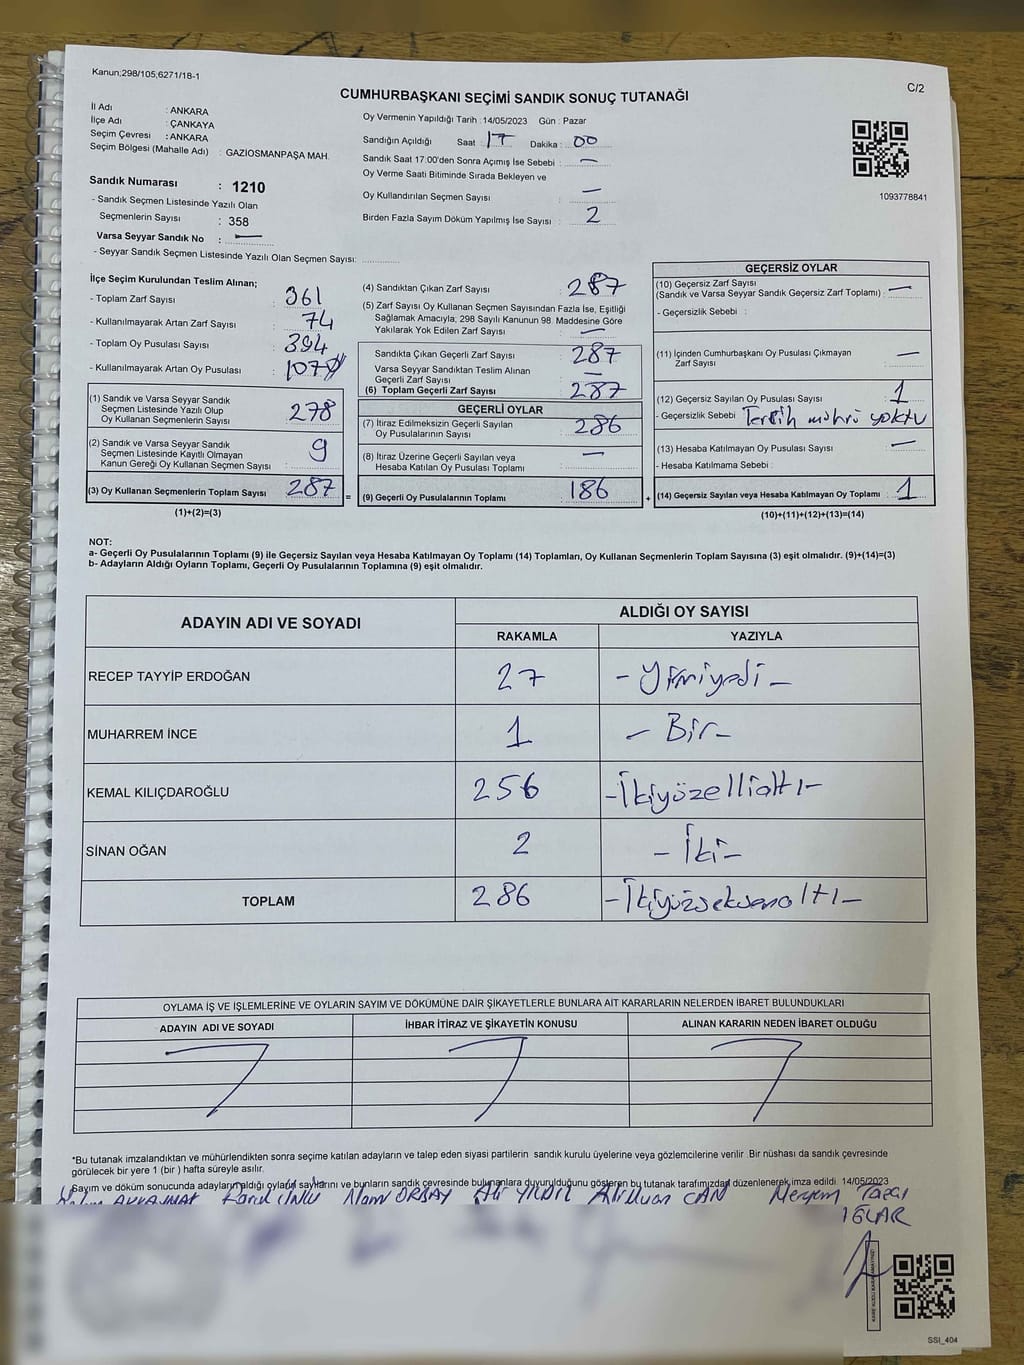 Kanun;298/105,6271/18-1
C/2
CUMHURBAŞKANI SEÇİMİ SANDIK SONUÇ TUTANAĞI
İl Adı : ANKARA
İlçe Adı : ÇANKAYA
Seçim Çevresi : ANKARA
Seçim Bölgesi (Mahalle Adı) : GAZİOSMANPAŞA MAH.
Sandık Numarası : 1210
- Sandık Seçmen Listesinde Yazılı Olan
Seçmenlerin Sayısı : 358
Varsa Seyyar Sandık No : —
- Seyyar Sandık Seçmen Listesinde Yazılı Olan Seçmen Sayısı:
Oy Vermenin Yapıldığı Tarih : 14/05/2023 Gün : Pazar
Sandığın Açıldığı Saat : 17 Dakika : 00
Sandık Saat 17:00'den Sonra Açımış İse Sebebi : —
Oy Verme Saati Bitiminde Sırada Bekleyen ve
Oy Kullandırılan Seçmen Sayısı : —
Birden Fazla Sayım Döküm Yapılmış İse Sayısı : 2
1093778841
İlçe Seçim Kurulundan Teslim Alınan;
- Toplam Zarf Sayısı : 361
- Kullanılmayarak Artan Zarf Sayısı : 74
- Toplam Oy Pusulası Sayısı : 394
- Kullanılmayarak Artan Oy Pusulası : 107
(1) Sandık ve Varsa Seyyar Sandık
Seçmen Listesinde Yazılı Olup
Oy Kullanan Seçmenlerin Sayısı : 278
(2) Sandık ve Varsa Seyyar Sandık
Seçmen Listesinde Kayıtlı Olmayan
Kanun Gereği Oy Kullanan Seçmen Sayısı : 9
(3) Oy Kullanan Seçmenlerin Toplam Sayısı : 287
(1)+(2)=(3)
(4) Sandıktan Çıkan Zarf Sayısı : 287
(5) Zarf Sayısı Oy Kullanan Seçmen Sayısından Fazla İse, Eşitliği
Sağlamak Amacıyla; 298 Sayılı Kanunun 98. Maddesine Göre
Yakılarak Yok Edilen Zarf Sayısı : —
Sandıkta Çıkan Geçerli Zarf Sayısı : 287
Varsa Seyyar Sandıktan Teslim Alınan
Geçerli Zarf Sayısı : —
(6) Toplam Geçerli Zarf Sayısı : 287
GEÇERLİ OYLAR
(7) İtiraz Edilmeksizin Geçerli Sayılan
Oy Pusulalarının Sayısı : 286
(8) İtiraz Üzerine Geçerli Sayılan veya
Hesaba Katılan Oy Pusulası Toplamı : —
= (9) Geçerli Oy Pusulalarının Toplamı : 186
GEÇERSİZ OYLAR
(10) Geçersiz Zarf Sayısı
(Sandık ve Varsa Seyyar Sandık Geçersiz Zarf Toplamı) : —
- Geçersizlik Sebebi :
(11) İçinden Cumhurbaşkanı Oy Pusulası Çıkmayan
Zarf Sayısı : —
(12) Geçersiz Sayılan Oy Pusulası Sayısı : 1
- Geçersizlik Sebebi : Tercih mührü yoktu
(13) Hesaba Katılmayan Oy Pusulası Sayısı : —
- Hesaba Katılmama Sebebi :
+ (14) Geçersiz Sayılan veya Hesaba Katılmayan Oy Toplamı : 1
(10)+(11)+(12)+(13)=(14)
NOT:
a- Geçerli Oy Pusulalarının Toplamı (9) ile Geçersiz Sayılan veya Hesaba Katılmayan Oy Toplamı (14) Toplamları, Oy Kullanan Seçmenlerin Toplam Sayısına (3) eşit olmalıdır. (9)+(14)=(3)
b- Adayların Aldığı Oyların Toplamı, Geçerli Oy Pusulalarının Toplamına (9) eşit olmalıdır.
ADAYIN ADI VE SOYADI
ALDIĞI OY SAYISI
RAKAMLA YAZIYLA
RECEP TAYYİP ERDOĞAN 27 - Yirmiyedi -
MUHARREM İNCE 1 - Bir -
KEMAL KILIÇDAROĞLU 256 - İkiyüzellialtı -
SİNAN OĞAN 2 - İki -
TOPLAM 286 - İkiyüzseksenaltı -
OYLAMA İŞ VE İŞLEMLERİNE VE OYLARIN SAYIM VE DÖKÜMÜNE DAİR ŞİKAYETLERLE BUNLARA AİT KARARLARIN NELERDEN İBARET BULUNDUKLARI
ADAYIN ADI VE SOYADI İHBAR İTİRAZ VE ŞİKAYETİN KONUSU ALINAN KARARIN NEDEN İBARET OLDUĞU
*Bu tutanak imzalandıktan ve mühürlendikten sonra seçime katılan adayların ve talep eden siyasi partilerin sandık kurulu üyelerine veya gözlemcilerine verilir. Bir nüshası da sandık çevresinde
görülecek bir yere 1 (bir ) hafta süreyle asılır.
Sayım ve döküm sonucunda adayların aldığı oyların sayılarını ve bunların sandık çevresinde bulunanlara duyurulduğunu gösteren bu tutanak tarafımızdan düzenlenerek imza edildi. 14/05/2023
ÜNLÜ ORBAY Ali YILDIZ CAN Meryem
SSI_404